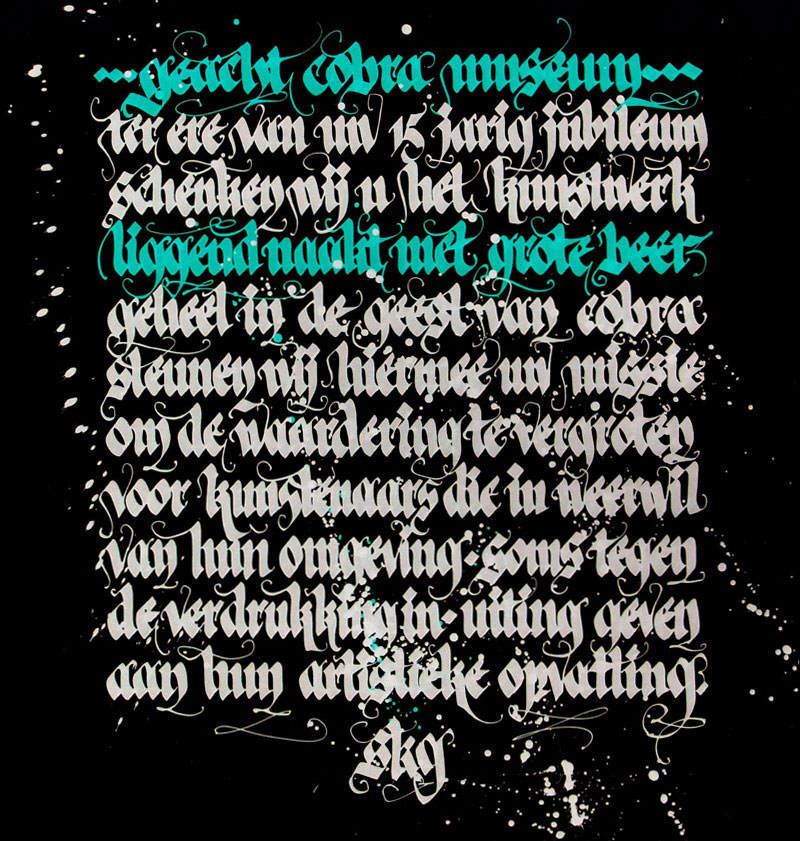 geacht cobra museum
ter ere van uw 15 jarig jubileum
schenken wij u het kunstwerk
liggend naakt met grote beer
geheel in de geest van cobra
steunen wij hiermee uw missie
om de waardering te vergroten
voor kunstenaars die in weerwil
van hun omgeving - soms tegen
de verdrukking in - uiting geven
aan hun artistieke opvatting.
skg